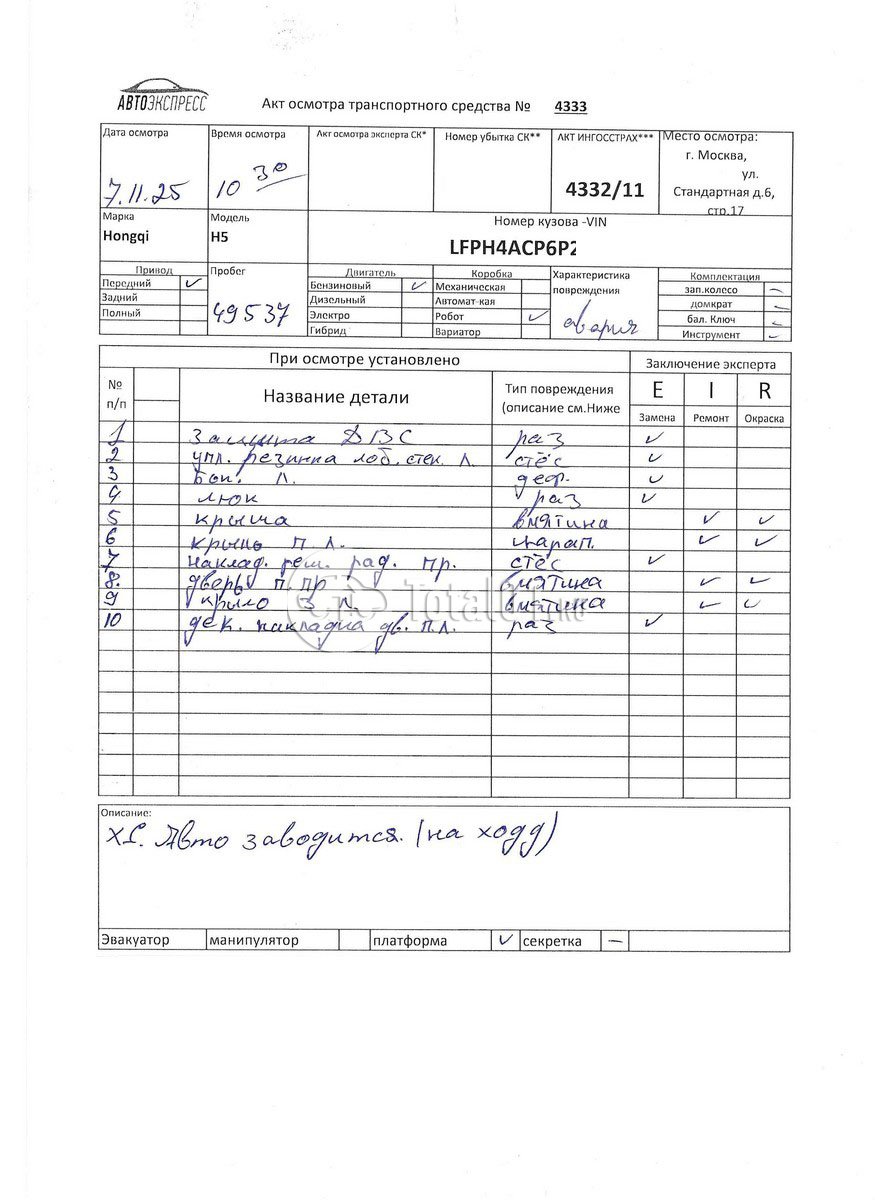 АВТОЭКСПРЕСС
Акт осмотра транспортного средства № 4333
Дата осмотра
7.11.25
Время осмотра
10 30
Акт осмотра эксперта СК*
Номер убытка СК**
АКТ ИНГОССТРАХ***
4332/11
Место осмотра:
г. Москва,
ул.
Стандартная д.6,
стр.17
Марка
Hongqi
Модель
H5
Номер кузова -VIN
LFPH4ACP6P2
Привод
Передний ✓
Задний
Полный
Пробег
49537
Двигатель
Бензиновый ✓
Дизельный
Электро
Гибрид
Коробка
Механическая
Автомат-кая
Робот ✓
Вариатор
Характеристика
повреждения
авария
Комплектация
зап.колесо –
домкрат –
бал. Ключ –
Инструмент –
При осмотре установлено
Заключение эксперта
№
п/п
Название детали
Тип повреждения
(описание см.Ниже
E I R
Замена Ремонт Окраска
1 защита ДВС раз ✓
2 упл. резинка лоб. стек. л. стёс ✓
3 Бок. л. деф. ✓
4 люк раз ✓
5 крыша вмятина ✓ ✓
6 п л. царап. ✓ ✓
7 наклад. реш. рад. пр. стёс ✓
8. дверь п. пр вмятина ✓ ✓
9 крыло з л. вмятина ✓ ✓
10 дек. накладка дв. п.л. раз ✓
TotalCar.RU
Описание:
Авто заводится. (на ходу)
Эвакуатор манипулятор платформа ✓ секретка –